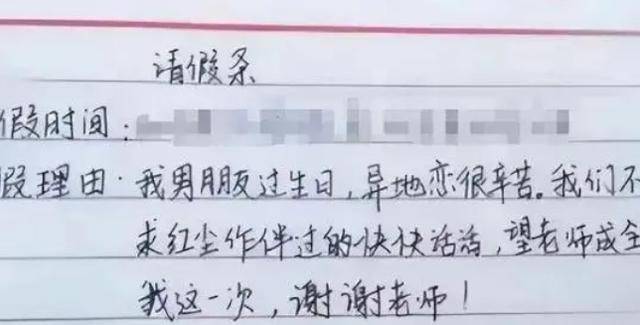 请假条
假时间:
假理由:我男朋友过生日,异地恋很辛苦。我们不
求红尘作伴过的快快活活,望老师成全
我这一次,谢谢老师!